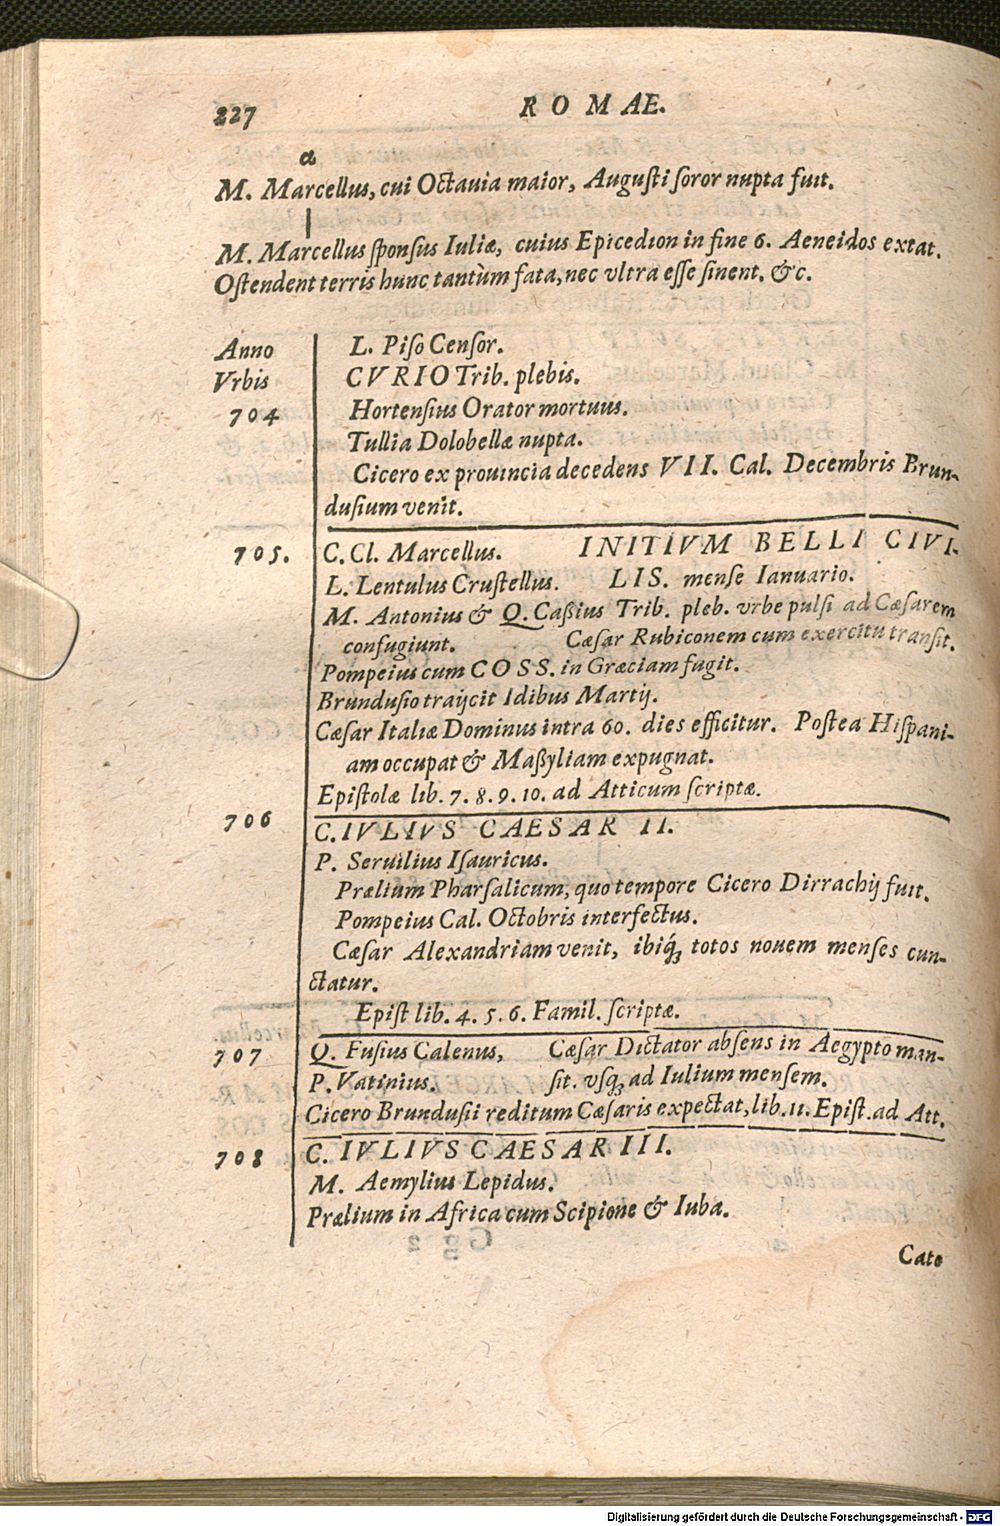 227 ROMAE.
a
M. Marcellus, cui Octauia maior, Augusti soror nupta fuit.
M. Marcellus sponsus Iuliæ, cuius Epicedion in fine 6. Aeneidos extat.
Ostendent terris hunc tantùm fata, nec vltra esse sinent. &c.
Anno L. Piso Censor.
Vrbis CVRIO Trib. plebis.
704 Hortensius Orator mortuus.
Tullia Dolobellæ nupta.
Cicero ex prouincia decedens VII. Cal. Decembris Brun-
dusium venit.
705. C. Cl. Marcellus. INITIVM BELLI CIVI-
L. Lentulus Crustellus. LIS. mense Ianuario.
M. Antonius & Q. Caßius Trib. pleb. vrbe pulsi ad Cæsarem
confugiunt. Cæsar Rubiconem cum exercitu transit.
Pompeius cum COSS. in Græciam fugit.
Brundusio traijcit Idibus Martij.
Cæsar Italiæ Dominus intra 60. dies efficitur. Postea Hispani-
am occupat & Maßyliam expugnat.
Epistolæ lib. 7. 8. 9. 10. ad Atticum scriptæ.
706 C. IVLIVS CAESAR II.
P. Seruilius Isauricus.
Prælium Pharsalicum, quo tempore Cicero Dirrachij fuit.
Pompeius Cal. Octobris interfectus.
Cæsar Alexandriam venit, ibiq́ꝫ totos nouem menses cun-
ctatur.
Epist lib. 4. 5. 6. Famil. scriptæ.
707 Q. Fusius Calenus, Cæsar Dictator absens in Aegypto man-
P. Vatinius. sit. vsqꝫ ad Iulium mensem.
Cicero Brundusii reditum Cæsaris expectat, lib. 11. Epist. ad Att.
708 C. IVLIVS CAESAR III.
M. Aemylius Lepidus.
Prælium in Africa cum Scipione & Iuba.
Cato
Digitalisierung gefördert durch die Deutsche Forschungsgemeinschaft - DFG